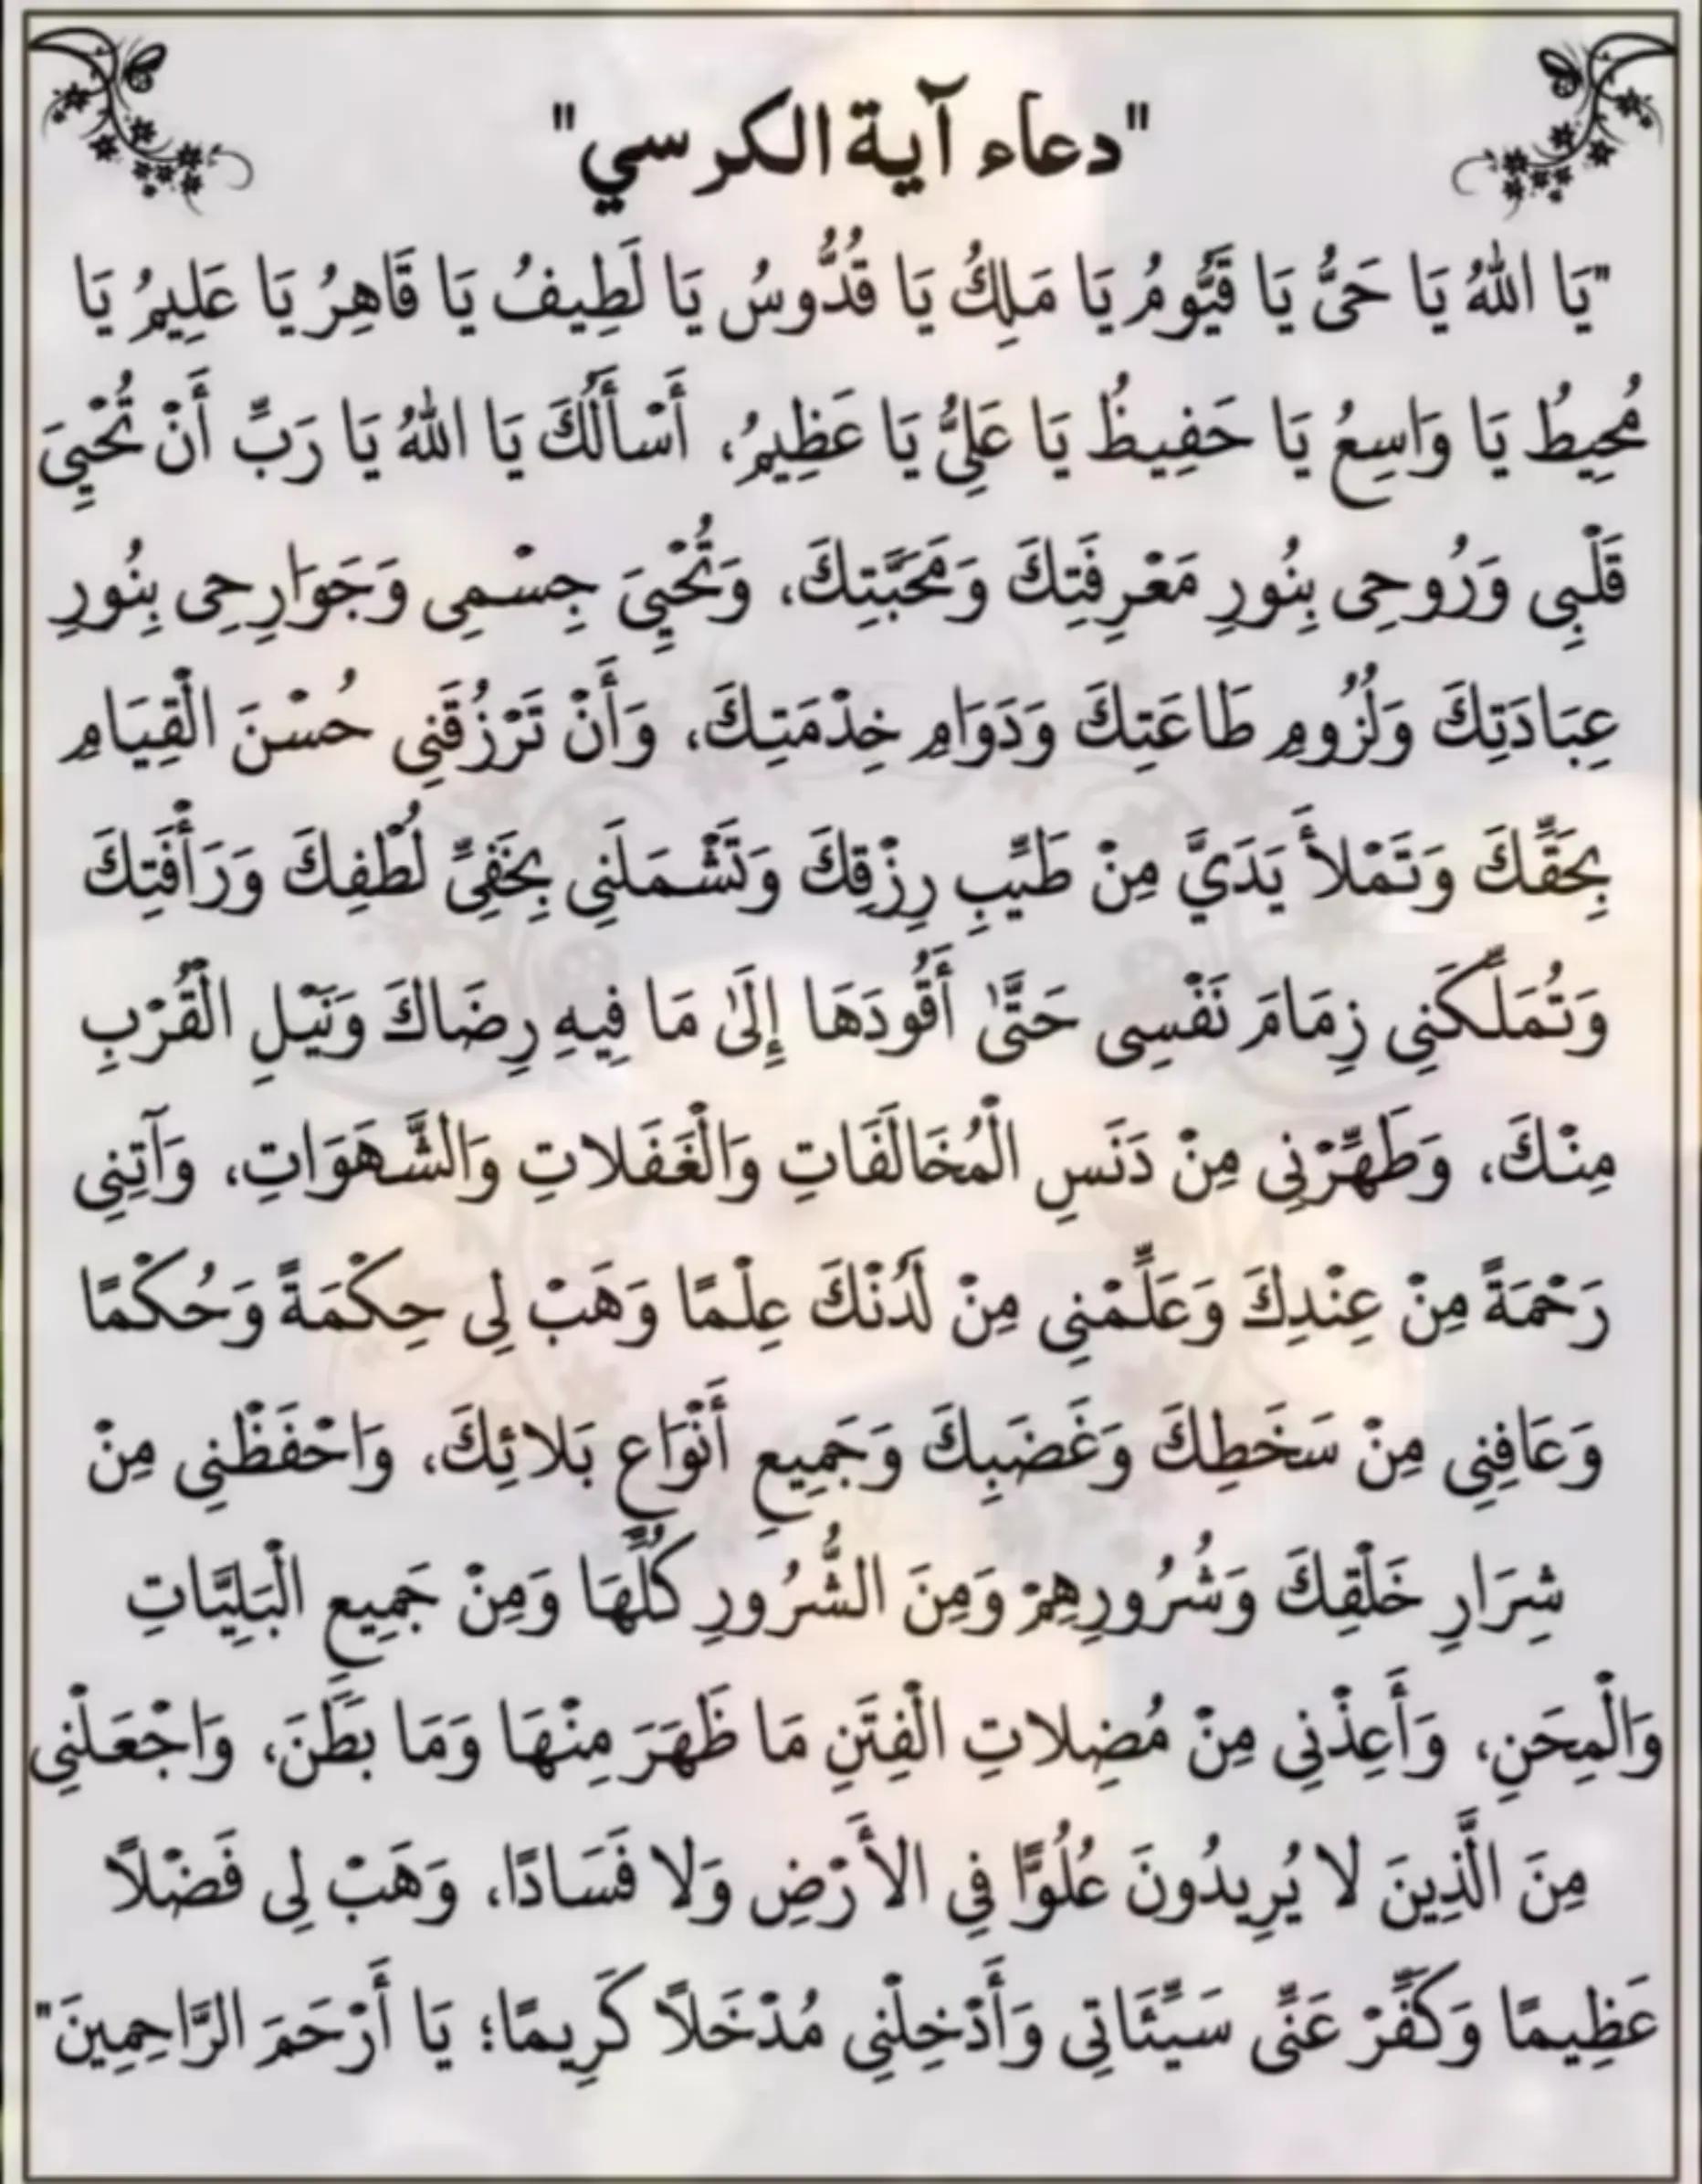 "دعاء آية الكرسي"
"يَا اللهُ يَا حَىُّ يَا قَيُّومُ يَا مَلِكُ يَا قُدُّوسُ يَا لَطِيفُ يَا قَاهِرُ يَا عَلِيمُ يَا
مُحِيطُ يَا وَاسِعُ يَا حَفِيظُ يَا عَلِىُّ يَا عَظِيمُ، أَسْأَلُكَ يَا اللهُ يَا رَبِّ أَنْ تُحْيِىَ
قَلْبِى وَرُوحِى بِنُورِ مَعْرِفَتِكَ وَمَحَبَّتِكَ، وَتُحْيِىَ جِسْمِى وَجَوَارِحِى بِنُورِ
عِبَادَتِكَ وَلُزُومِ طَاعَتِكَ وَدَوَامِ خِدْمَتِكَ، وَأَنْ تَرْزُقَنِى حُسْنَ الْقِيَامِ
بِحَقِّكَ وَتَمْلأَ يَدَيَّ مِنْ طَيِّبِ رِزْقِكَ وَتَشْمَلَنِى بِخَفِىِّ لُطْفِكَ وَرَأْفَتِكَ
وَتُمَلِّكَنِى زِمَامَ نَفْسِى حَتَّىٰ أَقُودَهَا إِلَىٰ مَا فِيهِ رِضَاكَ وَنَيْلِ الْقُرْبِ
مِنْكَ، وَطَهِّرْنِى مِنْ دَنَسِ الْمُخَالَفَاتِ وَالْغَفَلاتِ وَالشَّهَوَاتِ، وَآتِنِى
رَحْمَةً مِنْ عِنْدِكَ وَعَلِّمْنِى مِنْ لَدُنْكَ عِلْمًا وَهَبْ لِى حِكْمَةً وَحُكْمًا
وَعَافِنِى مِنْ سَخَطِكَ وَغَضَبِكَ وَجَمِيعِ أَنْوَاعِ بَلائِكَ، وَاحْفَظْنِى مِنْ
شِرَارِ خَلْقِكَ وَشُرُورِهِمْ وَمِنَ الشُّرُورِ كُلِّهَا وَمِنْ جَمِيعِ الْبَلِيَّاتِ
وَالْمِحَنِ، وَأَعِذْنِى مِنْ مُضِلاتِ الْفِتَنِ مَا ظَهَرَ مِنْهَا وَمَا بَطَنَ، وَاجْعَلْنِى
مِنَ الَّذِينَ لا يُرِيدُونَ عُلُوًّا فِى الأَرْضِ وَلا فَسَادًا، وَهَبْ لِى فَضْلاً
عَظِيمًا وَكَفِّرْ عَنِّى سَيِّئَاتِى وَأَدْخِلْنِى مُدْخَلاً كَرِيمًا؛ يَا أَرْحَمَ الرَّاحِمِينَ"